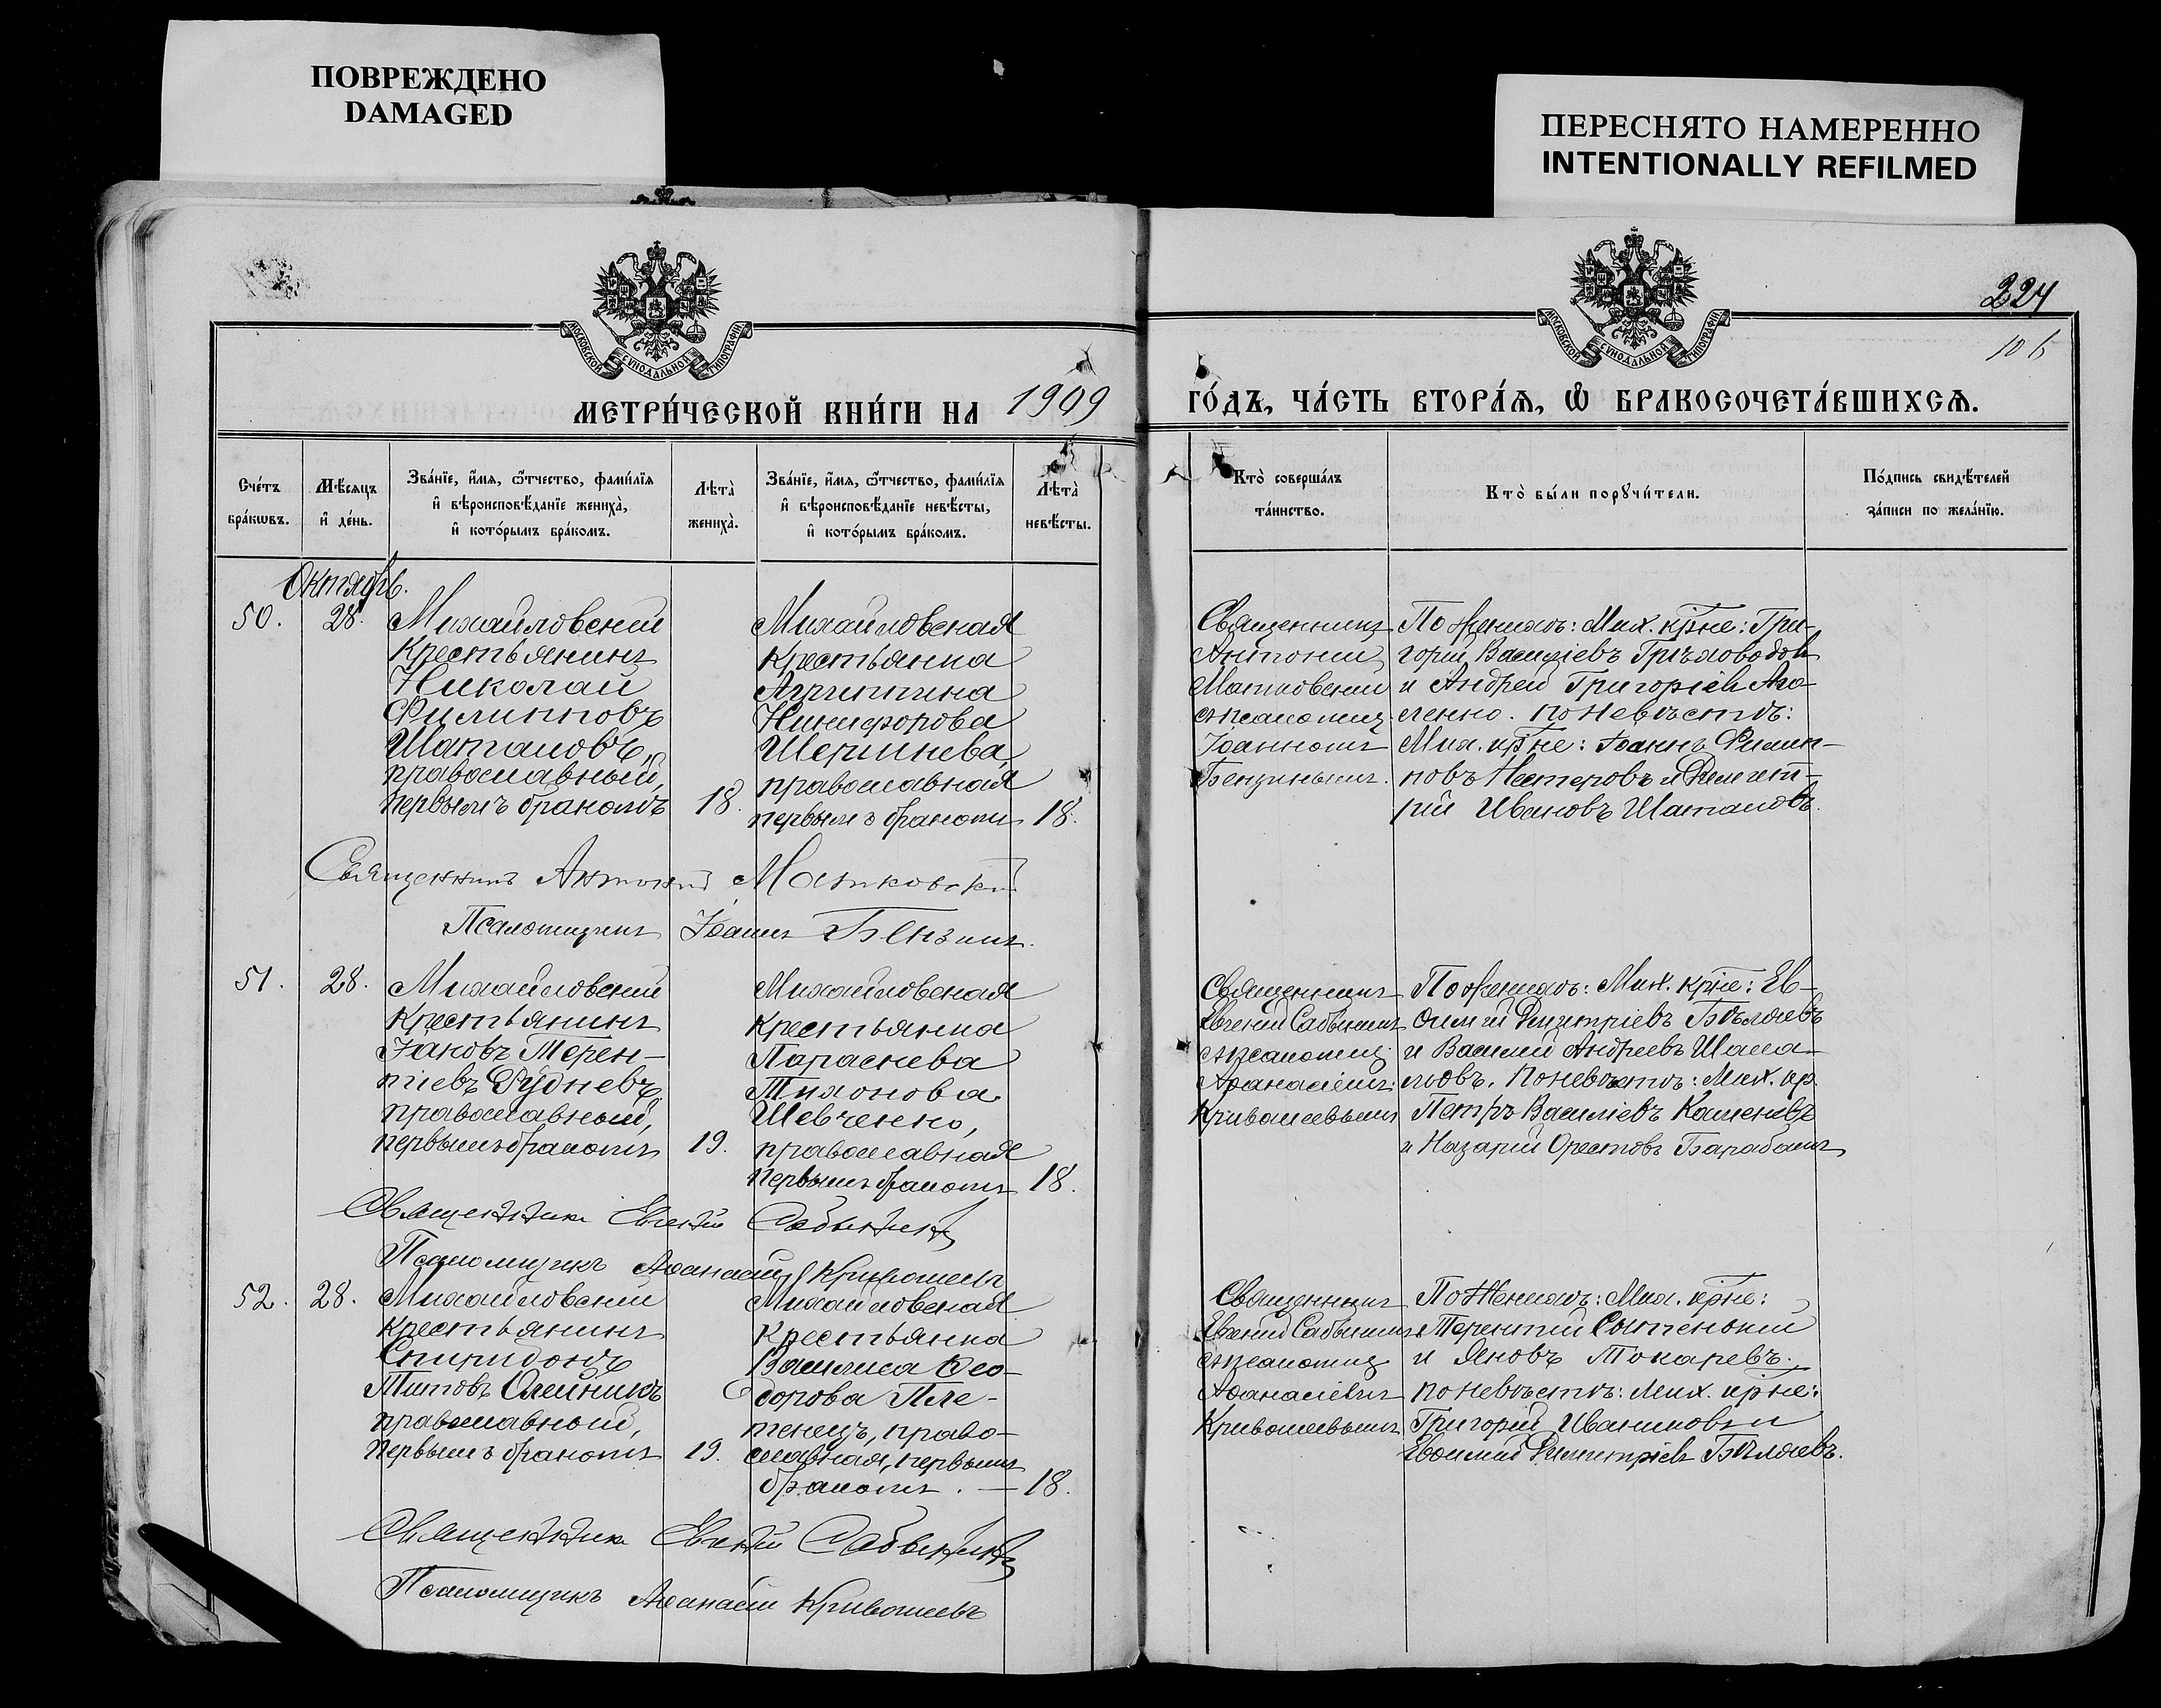 ПОВРЕЖДЕНО
DAMAGED
ПЕРЕСНЯТО НАМЕРЕННО
INTENTIONALLY REFILMED
МОСКОВСКОЙ СУНОДАЛЬНОЙ ТИПОГРАФІИ
МОСКОВСКОЙ СУНОДАЛЬНОЙ ТИПОГРАФІИ
224
106
МЕТРИ́ЧЕСКОЙ КНИ́ГИ НА 1909
ГО́ДЪ, ЧА́СТЬ ВТОРА́Ѧ, Ѡ҆ БРАКОСОЧЕТА́ВШИХСѦ.
Сче́тъ
бра́кѡвъ.
Мѣ́сѧцъ
и҆ де́нь.
Зва́нїе, и҆́мѧ, ѻ҆́тчество, фами́лїѧ
и҆ вѣроисповѣ́данїе жениха̀,
и҆ кото́рымъ бра́комъ.
Лѣта̀
жениха̀.
Зва́нїе, и҆́мѧ, ѻ҆́тчество, фами́лїѧ
и҆ вѣроисповѣ́данїе невѣ́сты,
и҆ кото́рымъ бра́комъ.
Лѣта̀
невѣ́сты.
Кто̀ соверша́лъ
та́инство.
Кто̀ бы́ли порꙋчи́тели.
По́дпись свидѣ́телей
за́писи по жела́нїю.
Октябрь.
50.
28.
Михайловскій
крестьянинъ
Николай
Филипповъ
Шаталовъ,
православный,
первымъ бракомъ
18.
Михайловская
крестьянка
Агриппина
Никифорова
Шершнева,
православная
первымъ бракомъ
18.
Священникъ
Антоній
Матковскій
с псаломщ.
Іоанномъ
Бензинымъ.
По женихѣ: Мих. кр-не: Гри-
горій Василіевъ
и Андрей Григоріевъ
по невѣстѣ:
Мих. кр-не: Іоаннъ Филип-
повъ Нестеровъ и Димит-
рій Ивановъ Шаталовъ.
Священникъ Антоній Матковскій
Псаломщикъ Іоаннъ Бензинъ.
51.
28.
Михайловскій
крестьянинъ
Іаковъ Терен-
тіевъ Рудневъ,
православный,
первымъ бракомъ
19.
Михайловская
крестьянка
Параскева
Тихонова
Шевченко,
православная
первымъ бракомъ
18.
Священникъ
Евгеній Сабынинъ
с псаломщ.
Аѳанасіемъ
Кривошеевымъ
По женихѣ: Мих. кр-не: Ев-
ѳимій Димитріевъ Бѣляевъ
и Василій Андреевъ
По невѣстѣ: Мих. кр.
Петръ Василіевъ
и Назарій Орестовъ Барабашъ
Священникъ Евгеній Сабынинъ
Псаломщикъ Аѳанасій Кривошеевъ
52.
28.
Михайловскій
крестьянинъ
Спиридонъ
Титовъ Олейникъ
православный,
первымъ бракомъ
19.
Михайловская
крестьянка
Василиса Ѳео-
дорова Пле-
тенецъ, право-
славная, первымъ
бракомъ. — 18.
Священникъ
Евгеній Сабынинъ
с псаломщ.
Аѳанасіемъ
Кривошеевымъ
По женихѣ: Мих. кр-не:
Терентій Сытенькій
и Яковъ Токаревъ.
По невѣстѣ: Мих. кр-не:
Григорій Иваниковъ и
Евѳимій Димитріевъ Бѣляевъ.
Священникъ Евгеній Сабынинъ
Псаломщикъ Аѳанасій Кривошеевъ